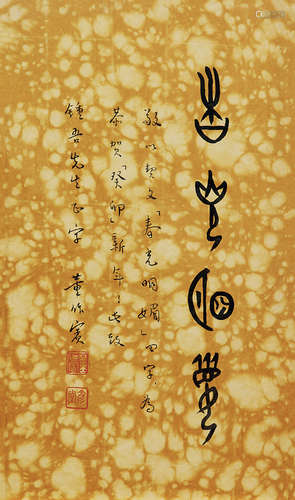 春光明媚
敬以契文「春光明媚」四字，為
恭賀「癸卯」新年，此致
鍾吾先生正字 董作賓